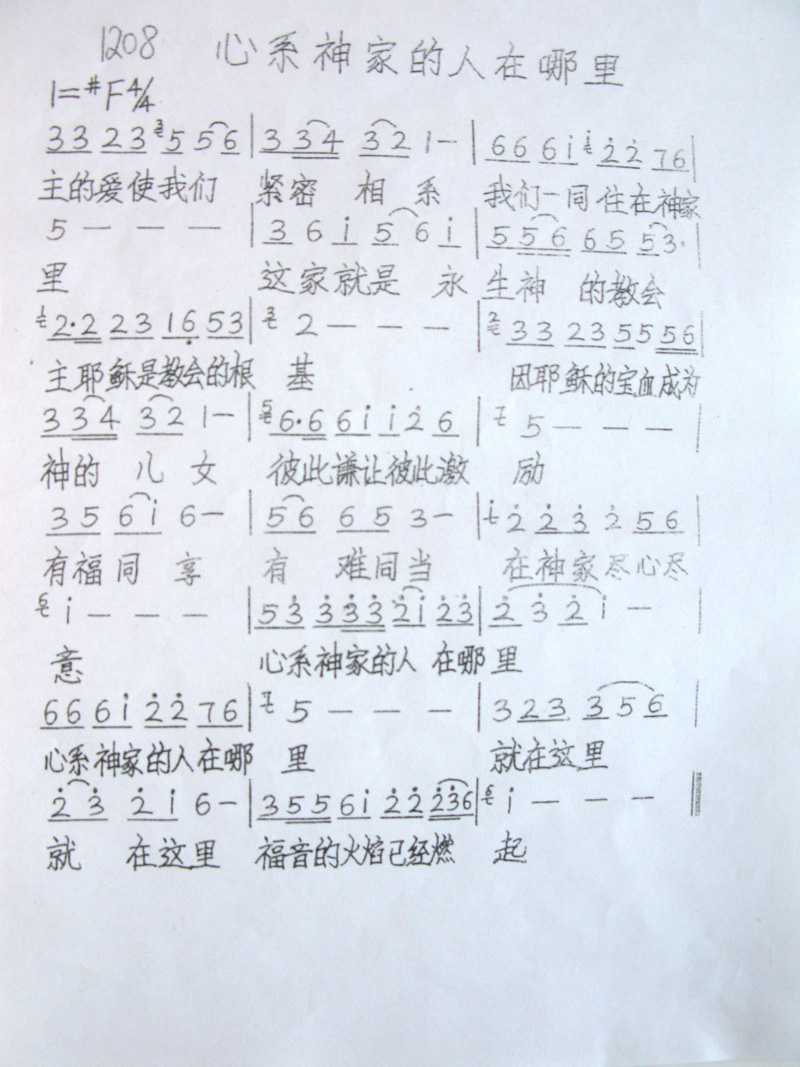 1208 心系神家的人在哪里
1=#F 4/4
33 23 3 5 5 6 | 3 3 4 3 2 1 — | 66 6i i 2̇2̇ 76 |
主的爱使我们 紧密 相 系 我们一同住在神家
5 — — — | 3 6 i 5 6 i | 5 5 6 6 5 5 3· |
里 这家就是 永 生神 的教会
1 2·2 23 16̣ 53 | 3 2 — — — | 2 33 23 55 556 |
主耶稣是教会的根 基 因耶稣的宝血成为
3 3 4 3 2 1 — | 5 6·6 6i i 2̇ 6 | 7 5 — — — |
神的 儿 女 彼此谦让彼此激 励
3 5 6 i 6 — | 5 6 6 5 3 — | i 2̇ 2̇ 3̇ 2̇ 5 6 |
有福同 享 有 难同当 在神家尽心尽
6 i — — — | 5 3̇ 3̇ 3̇ 3̇ 2̇ i 2̇ 3̇ | 2̇ 3̇ 2̇ i — |
意 心系神家的人 在哪里
66 6i 2̇2̇ 76 | 7 5 — — — | 3 2 3 3 5 6 |
心系神家的人在哪 里 就在这里
2̇ 3̇ 2̇ i 6 — | 3 5 5 6i 2̇2̇ 2̇3̇6 | 6 i — — — ‖
就 在这里 福音的火焰已经燃 起